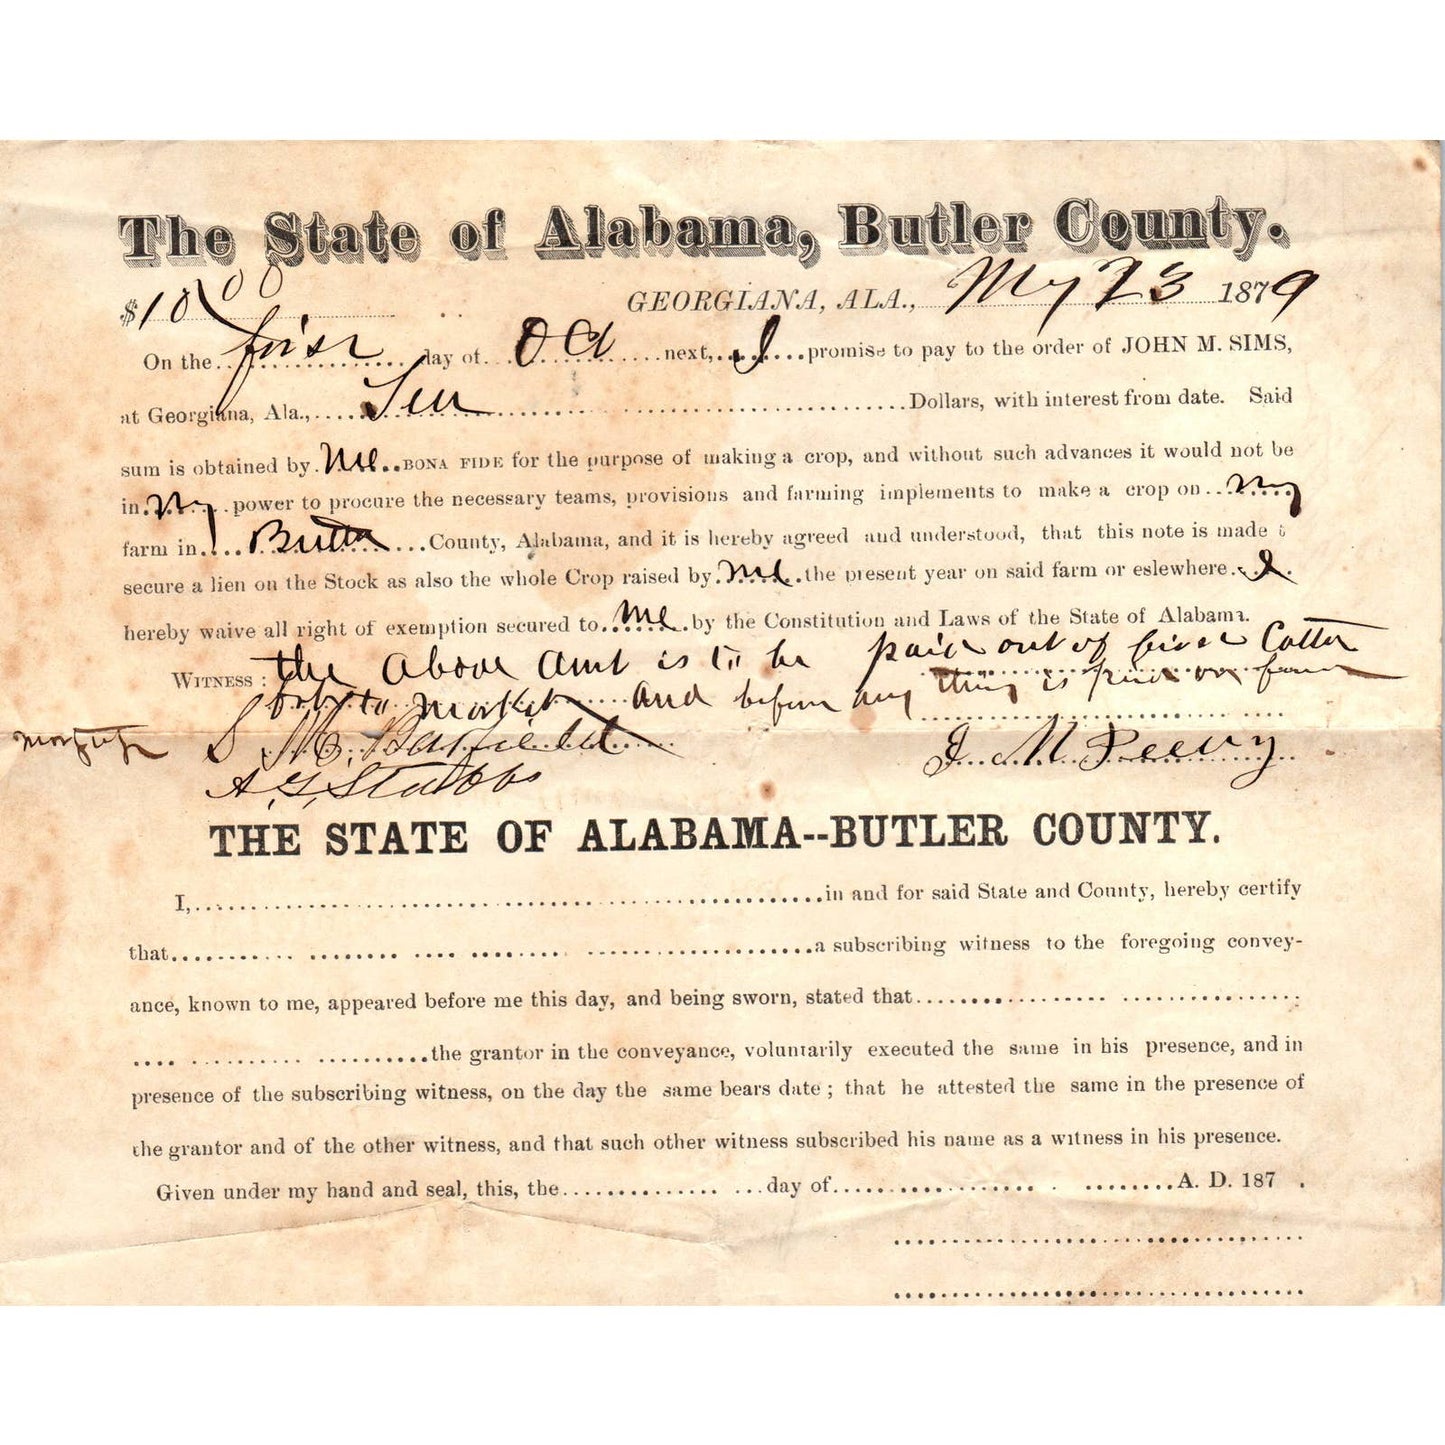 The State of Alabama, Butler County.
$10 00 GEORGIANA, ALA., My 23 1879
On the first day of Oct next, I promise to pay to the order of JOHN M. SIMS,
at Georgiana, Ala., Ten Dollars, with interest from date. Said
sum is obtained by Me BONA FIDE for the purpose of making a crop, and without such advances it would not be
in My power to procure the necessary teams, provisions and farming implements to make a crop on my
farm in Butler County, Alabama, and it is hereby agreed and understood, that this note is made
secure a lien on the Stock as also the whole Crop raised by Me the present year on said farm or eslewhere I
hereby waive all right of exemption secured to Me by the Constitution and Laws of the State of Alabama.
WITNESS: the above amt is to be paid out of first Cotton
to market and before any thing is paid on farm
mortgage S. M. Barfield J. M. Peevy
A. G. Stubbs
THE STATE OF ALABAMA--BUTLER COUNTY.
I, in and for said State and County, hereby certify
that a subscribing witness to the foregoing convey-
ance, known to me, appeared before me this day, and being sworn, stated that
the grantor in the conveyance, voluntarily executed the same in his presence, and in
presence of the subscribing witness, on the day the same bears date; that he attested the same in the presence of
the grantor and of the other witness, and that such other witness subscribed his name as a witness in his presence.
Given under my hand and seal, this, the day of A. D. 187 .